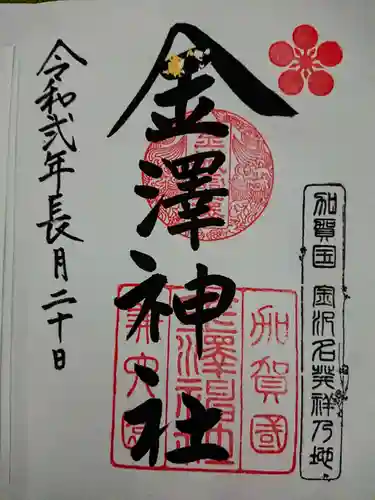 加賀国 金沢名発祥乃地
金澤神社
加賀國
令和弐年長月二十日